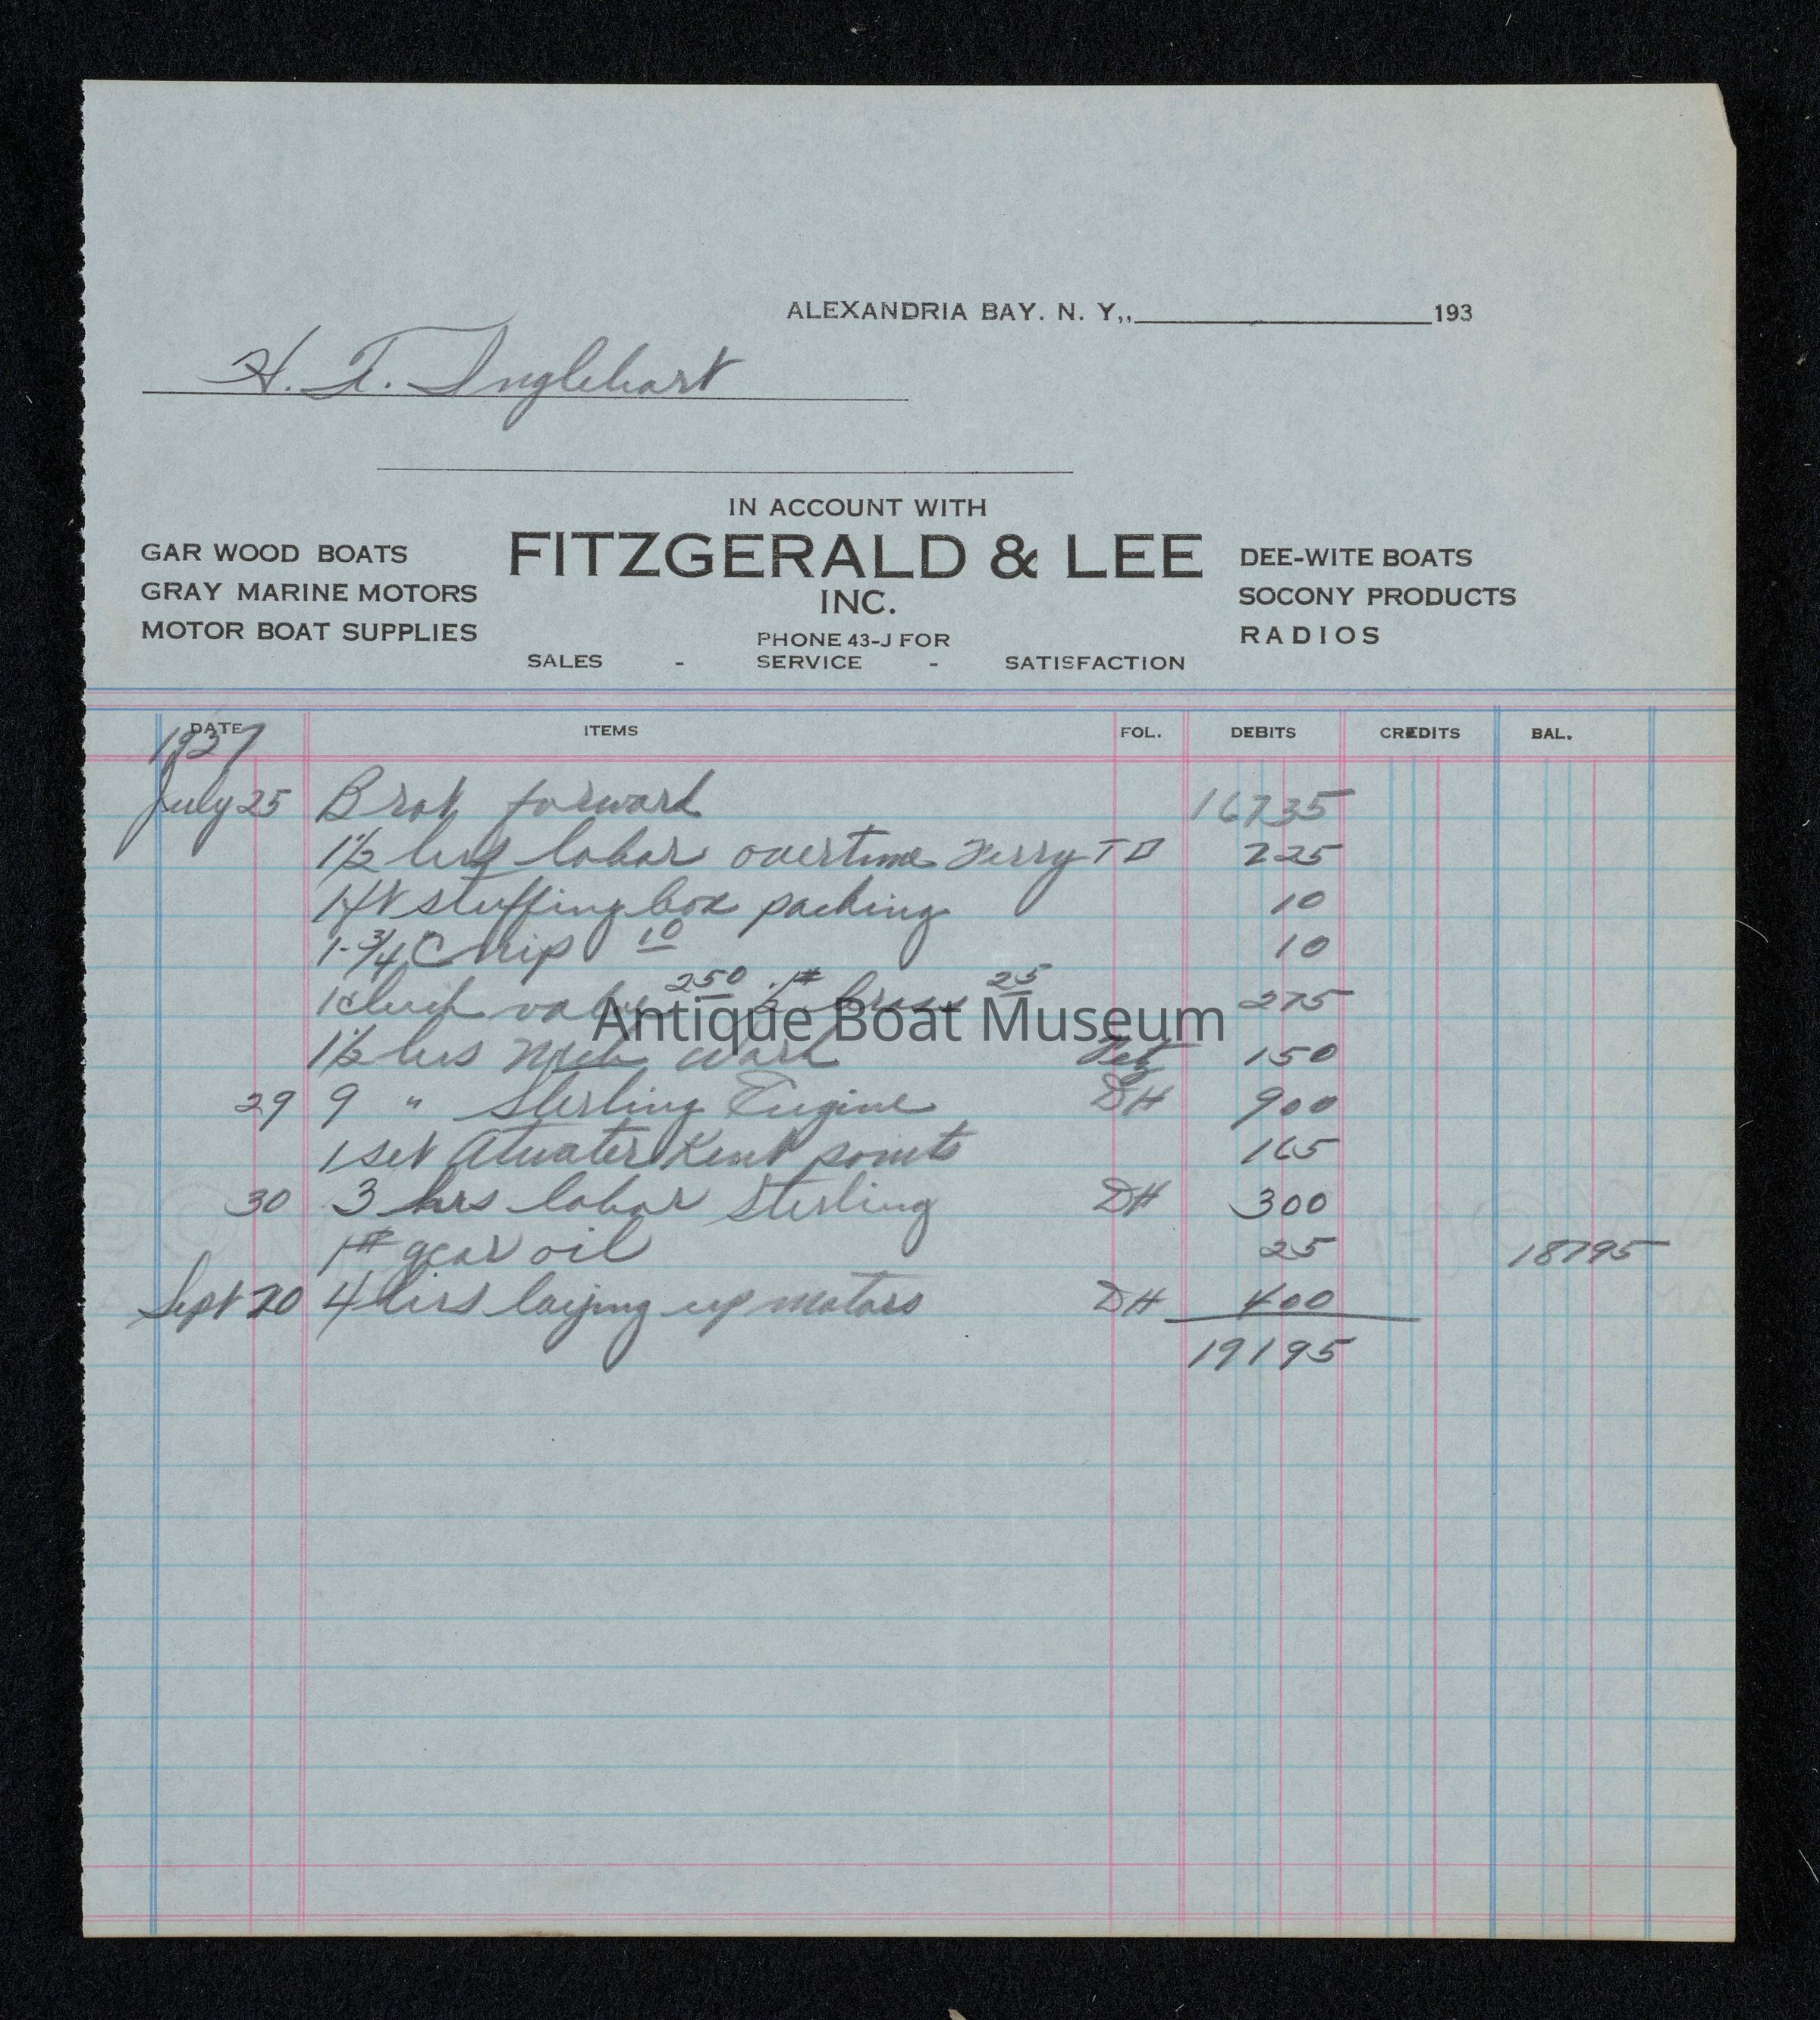 ALEXANDRIA BAY. N. Y,, 193
H. T. Inglehart
IN ACCOUNT WITH
GAR WOOD BOATS FITZGERALD & LEE DEE-WITE BOATS
GRAY MARINE MOTORS INC. SOCONY PRODUCTS
MOTOR BOAT SUPPLIES PHONE 43-J FOR RADIOS
SALES - SERVICE - SATISFACTION
DATE ITEMS FOL. DEBITS CREDITS BAL.
1937
July 25 Brot forward 16735
1½ hrs labor overtime Ferry TD 225
1 ft stuffing box packing 10
1-¾ C nip 10 10
1 clutch valve 250 ½# brass 25 275
1½ hrs work 150
29 9 " Sterling Engine DH 900
1 set Atwater Kent points 165
30 3 hrs labor Sterling DH 300
1# gear oil 25 18795
Sept 20 4 hrs laying up motors DH 400
19195
Antique Boat Museum